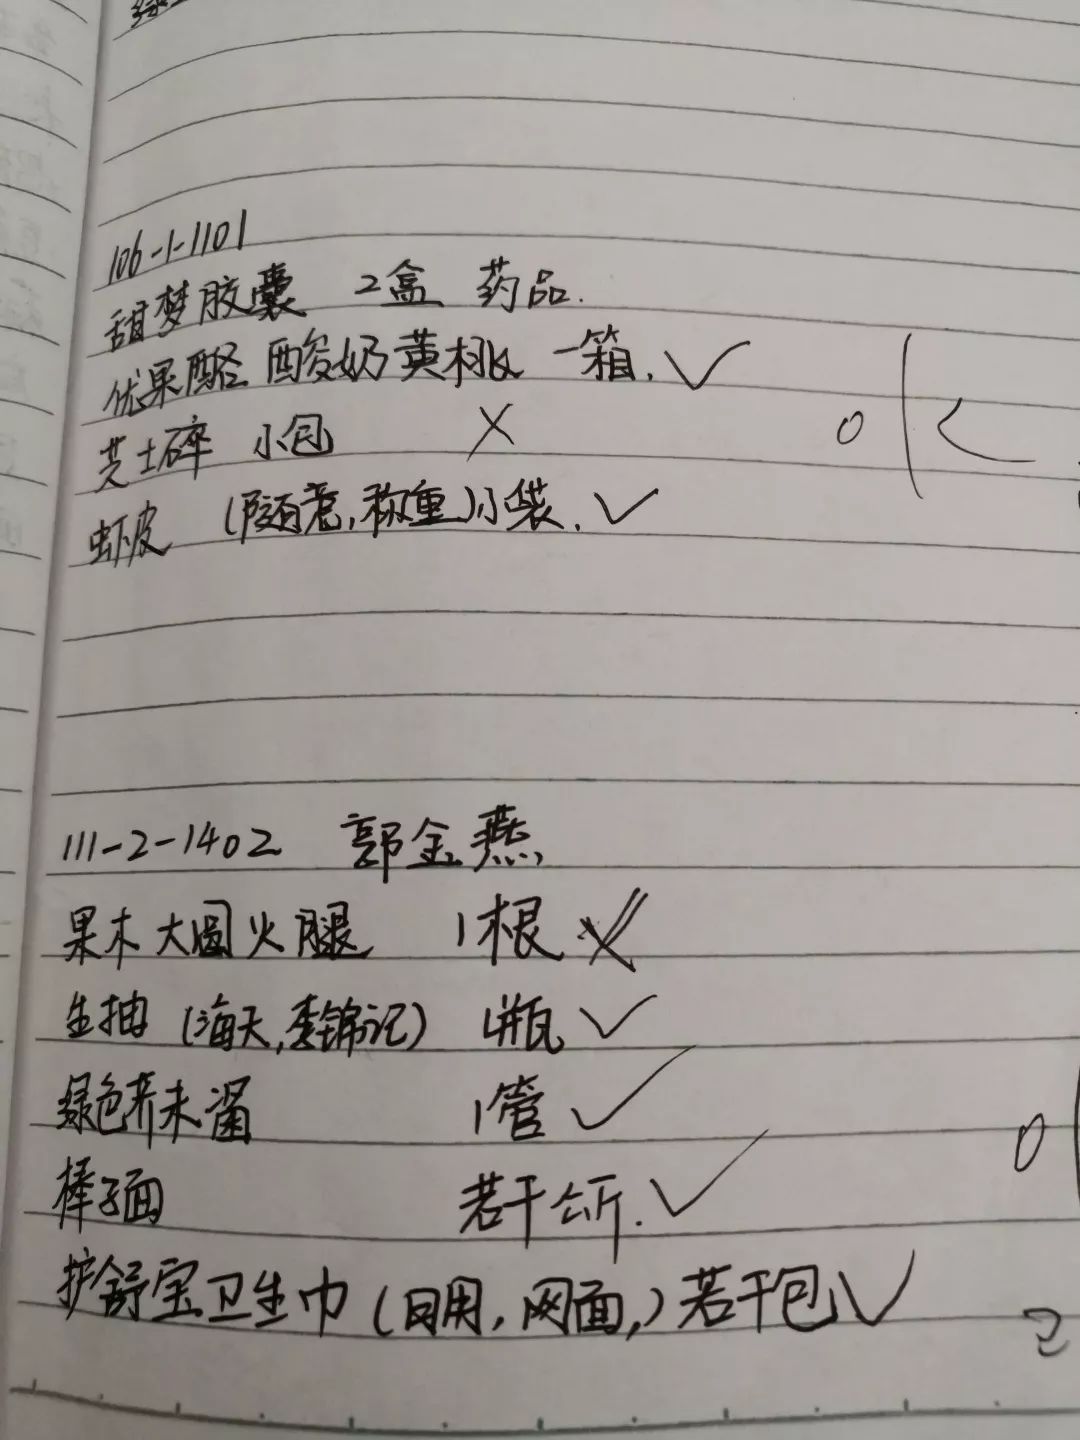 106-1-1101
甜梦胶囊 2盒 药品.
优果酪 酸奶黄桃 一箱. ✓
芝士碎 小包 ×
ok
虾皮 (随意,称重)小袋. ✓
111-2-1402 郭金燕
果木大圆火腿 1根 ×
生抽 (海天,李锦记) 1瓶 ✓
绿色芥末酱 1管 ✓
棒子面 若干公斤. ✓
护舒宝卫生巾 (日用,网面,) 若干包 ✓